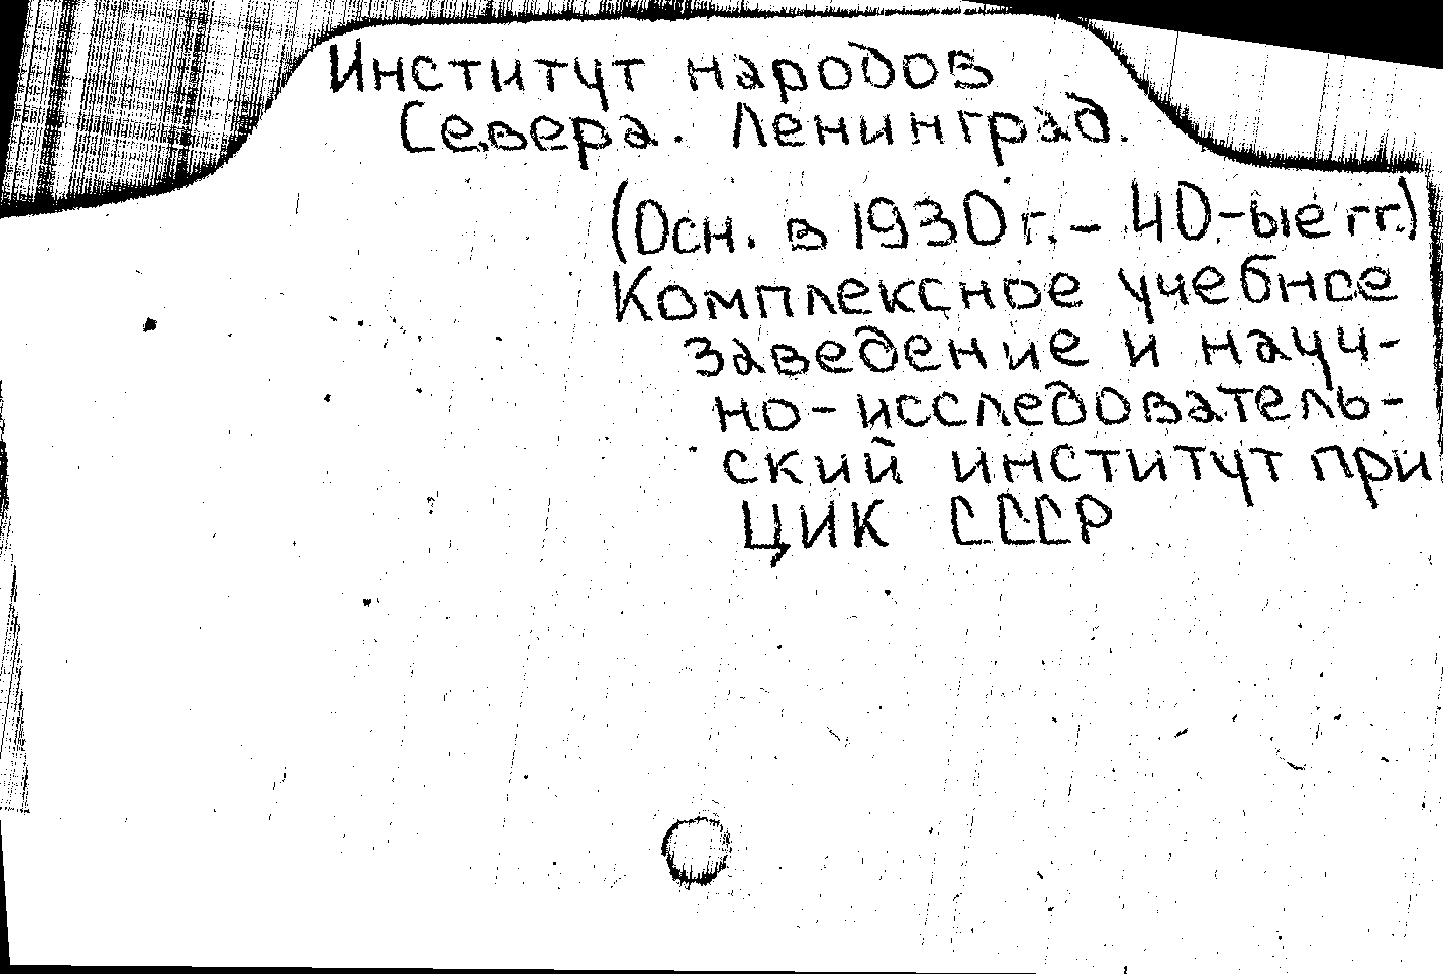 Институт народов
Севера. Ленинград.
(Осн. в 1930 г. - 40-ые гг.)
Комплексное учебное
заведение и науч-
но-исследователь-
ский институт при
ЦИК СССР